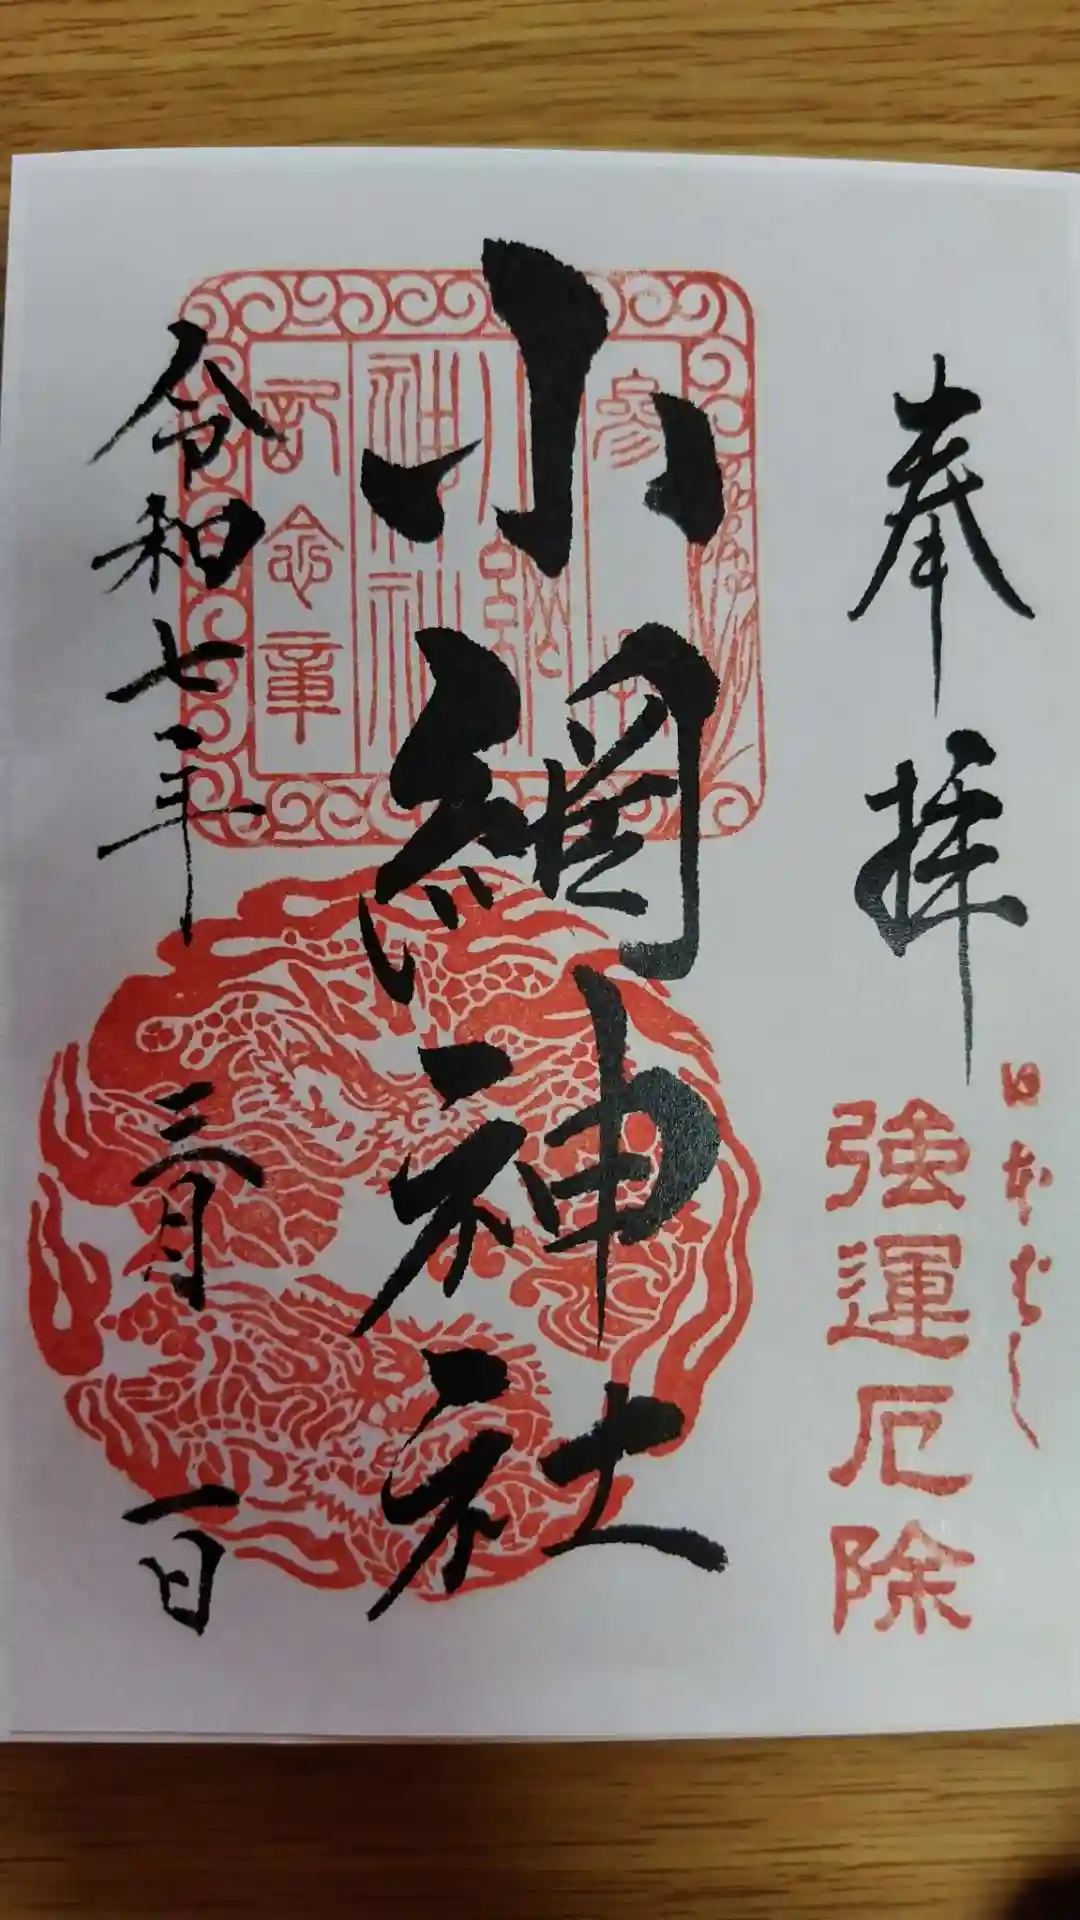 奉拝
日本ばし
強運厄除
小網神社
参拝
小網
神社
記念章
令和七年三月一日